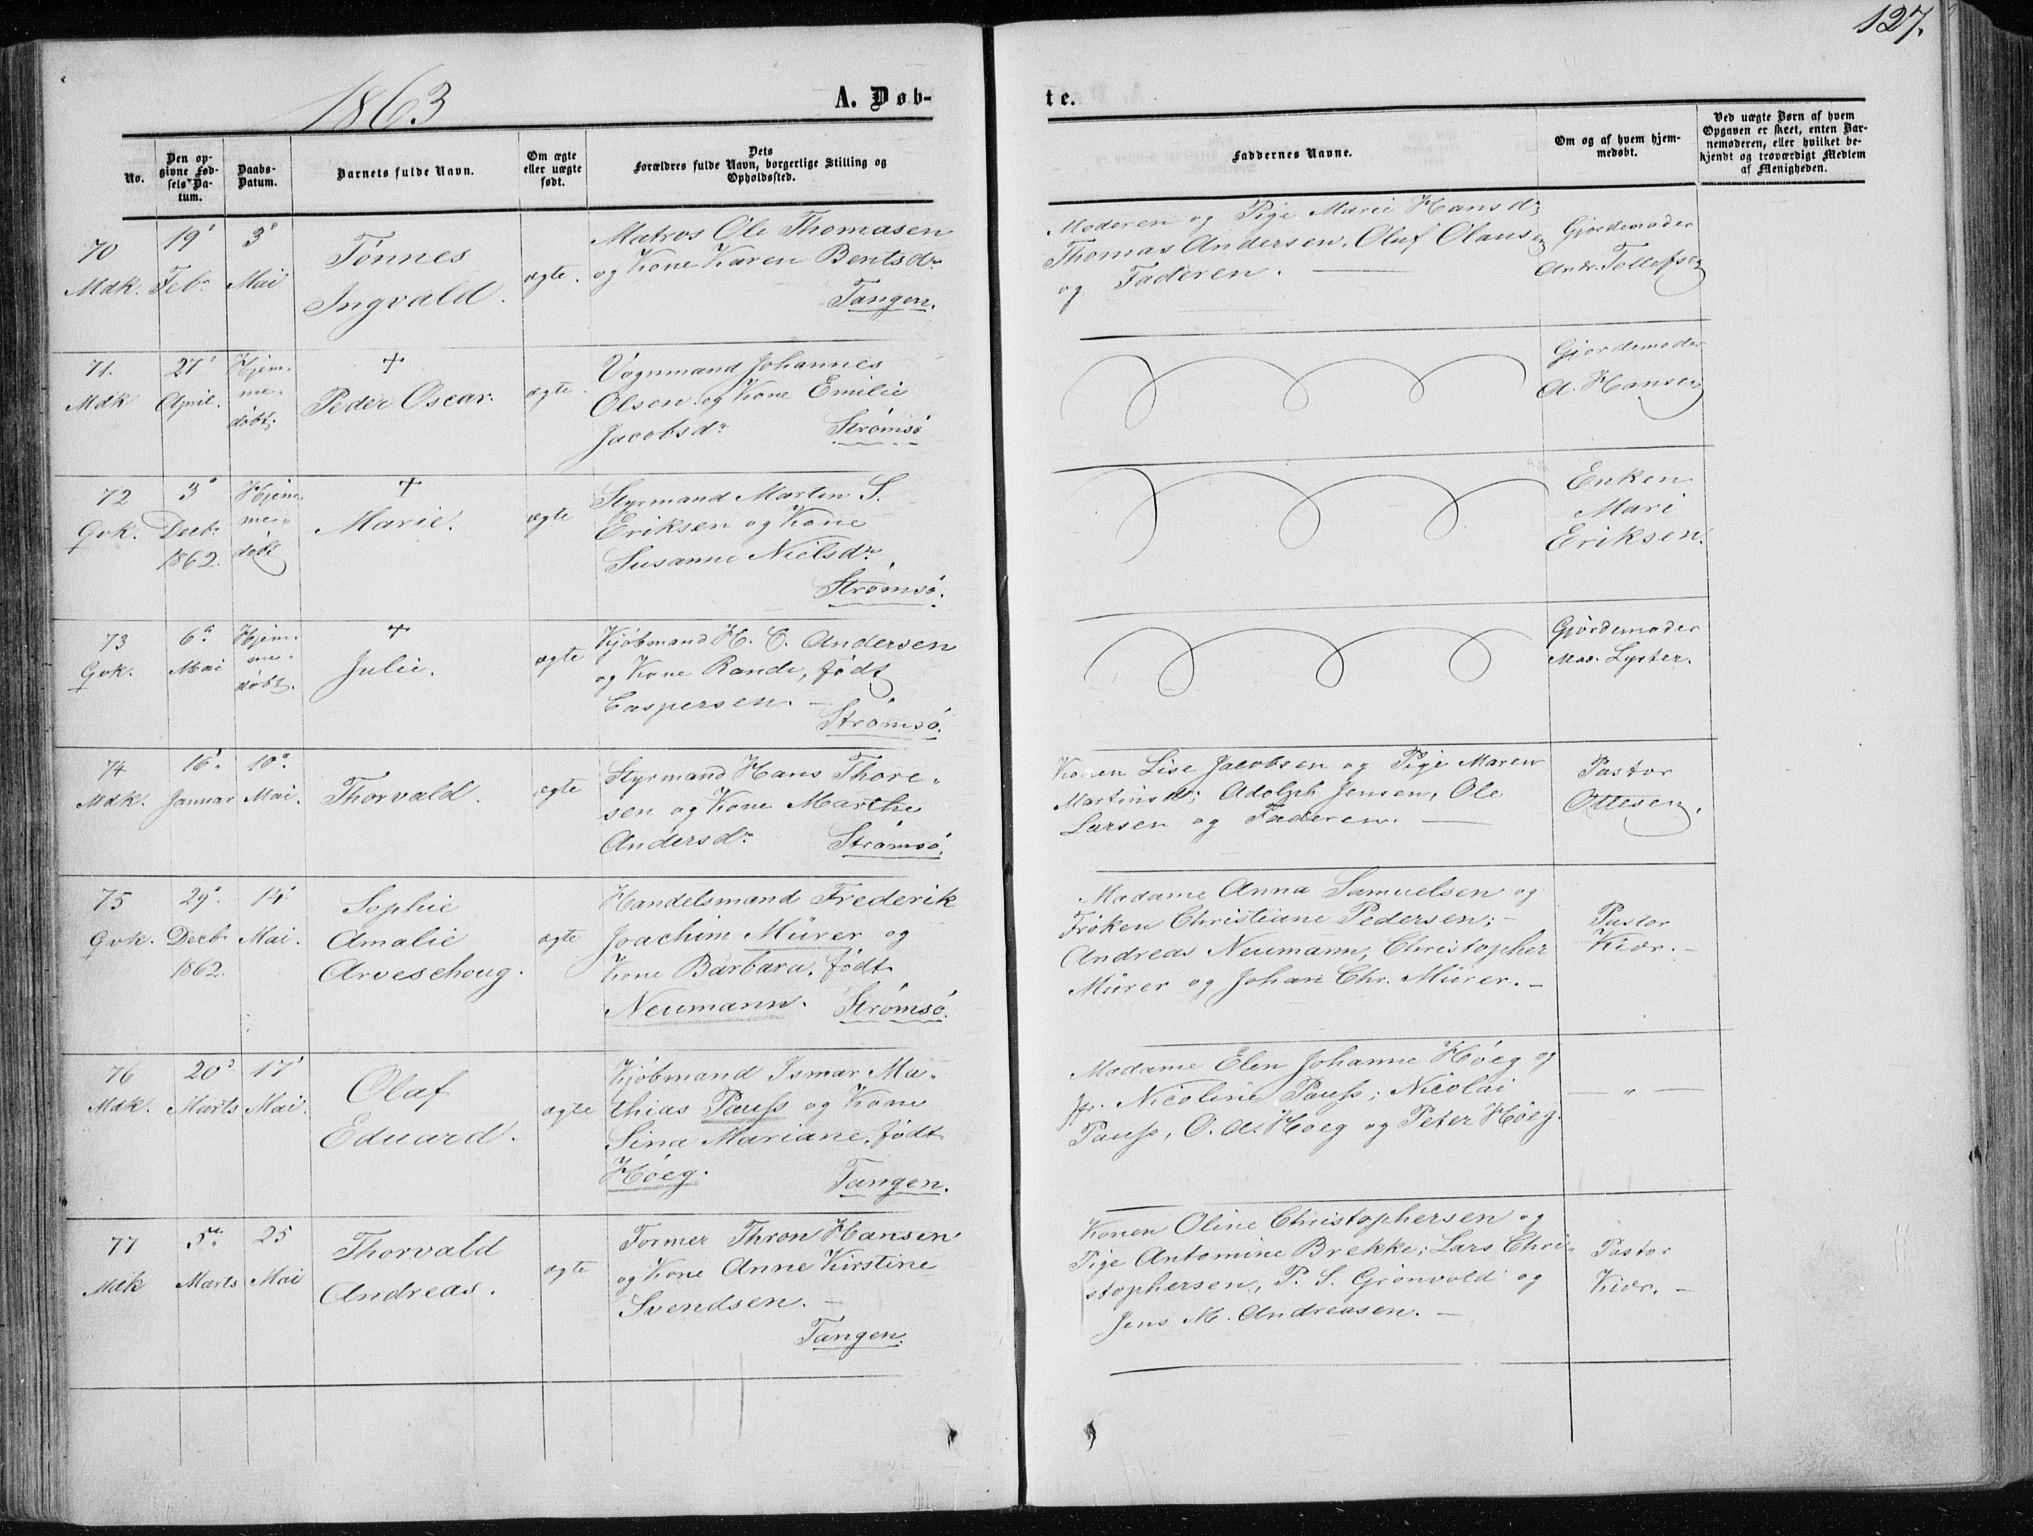 127.
1863
A. Døb-
te.
No.
Den op-
givne Fød-
sels Da-
tum.
Daabs-
Datum.
Barnets fulde Navn.
Om ægte
eller uægte
født.
Dets
Forældres fulde Navn, borgerlige Stilling og
Opholdssted.
Faddernes Navne.
Om og af hvem hjem-
medøbt.
Ved uægte Børn af hvem
Opgaven er skeet, enten Bar-
nemoderen, eller hvilket be-
kjendt og troværdigt Medlem
af Menigheden.
70
Mdk.
19'
Feb.
3'
Mai
Tønnes
Ingvald.
ægte.
Matros Ole Thomasen
og Kone Karen Bentsdr
Tangen.
Moderen og Pige Marie Hansd;
Thomas Andersen, Oluf Olausen
og Faderen.
Gjordemoder
Andr. Tollefsen
71.
Mdk
27'
April.
Hjem-
me-
døbt.
+
Peder Oscar.
ægte.
Vognmand Johannes
Olsen og Kone Emilie
Jacobsdr
Strømsø
Gjordemoder
A. Hansen
72
Qvk.
3'
Decbr
1862.
Hjem-
me-
døbt
+
Marie.
ægte
Styrmand Martin S.
Eriksen og Kone
Susanne Nielsdr.
Strømsø.
Enken
Mari
Eriksen.
73
Qvk.
6'
Mai
Hjem-
me-
døbt.
+
Julie.
ægte
Kjøbmand H. C. Andersen
og Kone Randi, født
Caspersen. –
Strømsø.
Gjordemoder
Mad. Lyster.
74
Mdk.
16'.
Januar
10'.
Mai.
Thorvald.
ægte
Styrmand Hans Thore-
sen og Kone Marthe
Andersdr
Strømsø.
Konen Lise Jacobsen og Pige Maren
Martinsd; Adolph Jensen, Ole
Larsen og Faderen. —
Pastor
Ottesen.
75
Qvk.
29'
Decbr
1862.
14'
Mai.
Sophie
Amalie
Arveschoug.
ægte
Handelsmand Frederik
Joachim Mürer og
Kone Barbara, født
Neumann. Strømsø.
Madame Anna Samuelsen og
Frøken Christiane Pedersen; –
Andreas Neumann, Christopher
Mürer og Johan Chr. Mürer. –
Pastor
Kiær. –
76
Mdk.
20'
Marts
17'
Mai.
Olaf
Eduard.
ægte
Kjøbmand Ismar Ma-
thias Pauss og Kone
Sina Mariane, født
Høeg.
Tangen.
Madame Elen Johanne Høeg og
Fr. Nicoline Pauss; Nicolai
Pauss, O. A. Høeg og Peter Høeg.
— " —
77
Mdk
5te
Marts
25
Mai
Thorvald
Andreas.
ægte
Former Thron Hansen
og Kone Anne Kirstine
Svendsen. –
Tangen.
Konen Oline Christophersen og
Pige Antomine Brekke; Lars Chri-
stophersen, P. S. Grønvold og
Jens M. Andreasen. –
Pastor
Kiær. –